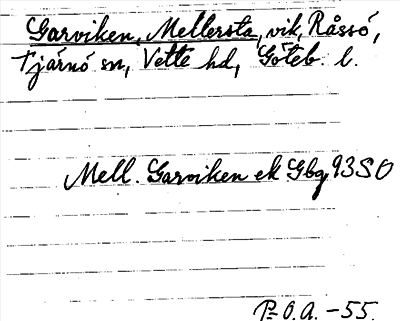 Garviken, Mellersta, vik, Råssö,
Tjärnö sn, Vette hd, Göteb. l.
Mell. Garviken ek Gbg 93SO
P-O.A. -55.